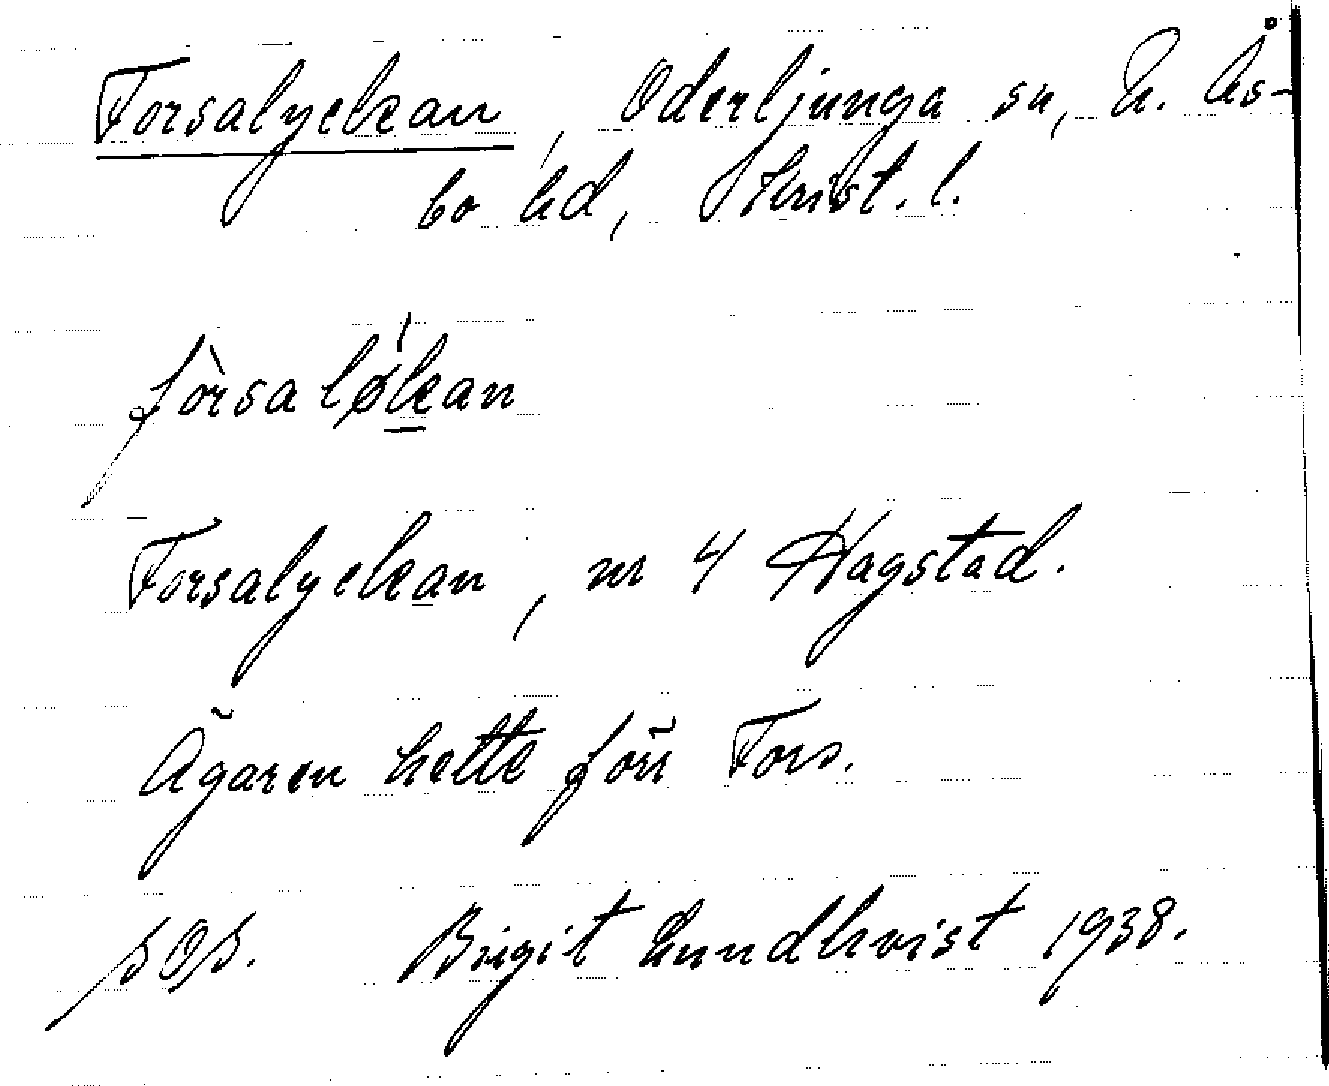 Forsalyckan, Oderljunga sn, N. Ås-
bo hd, Krist. l.
fòrsaløkan
Forsalyckan, nr 4 Hagstad.
Ägaren hette förr Fors.
Birgit Lundkvist 1938.